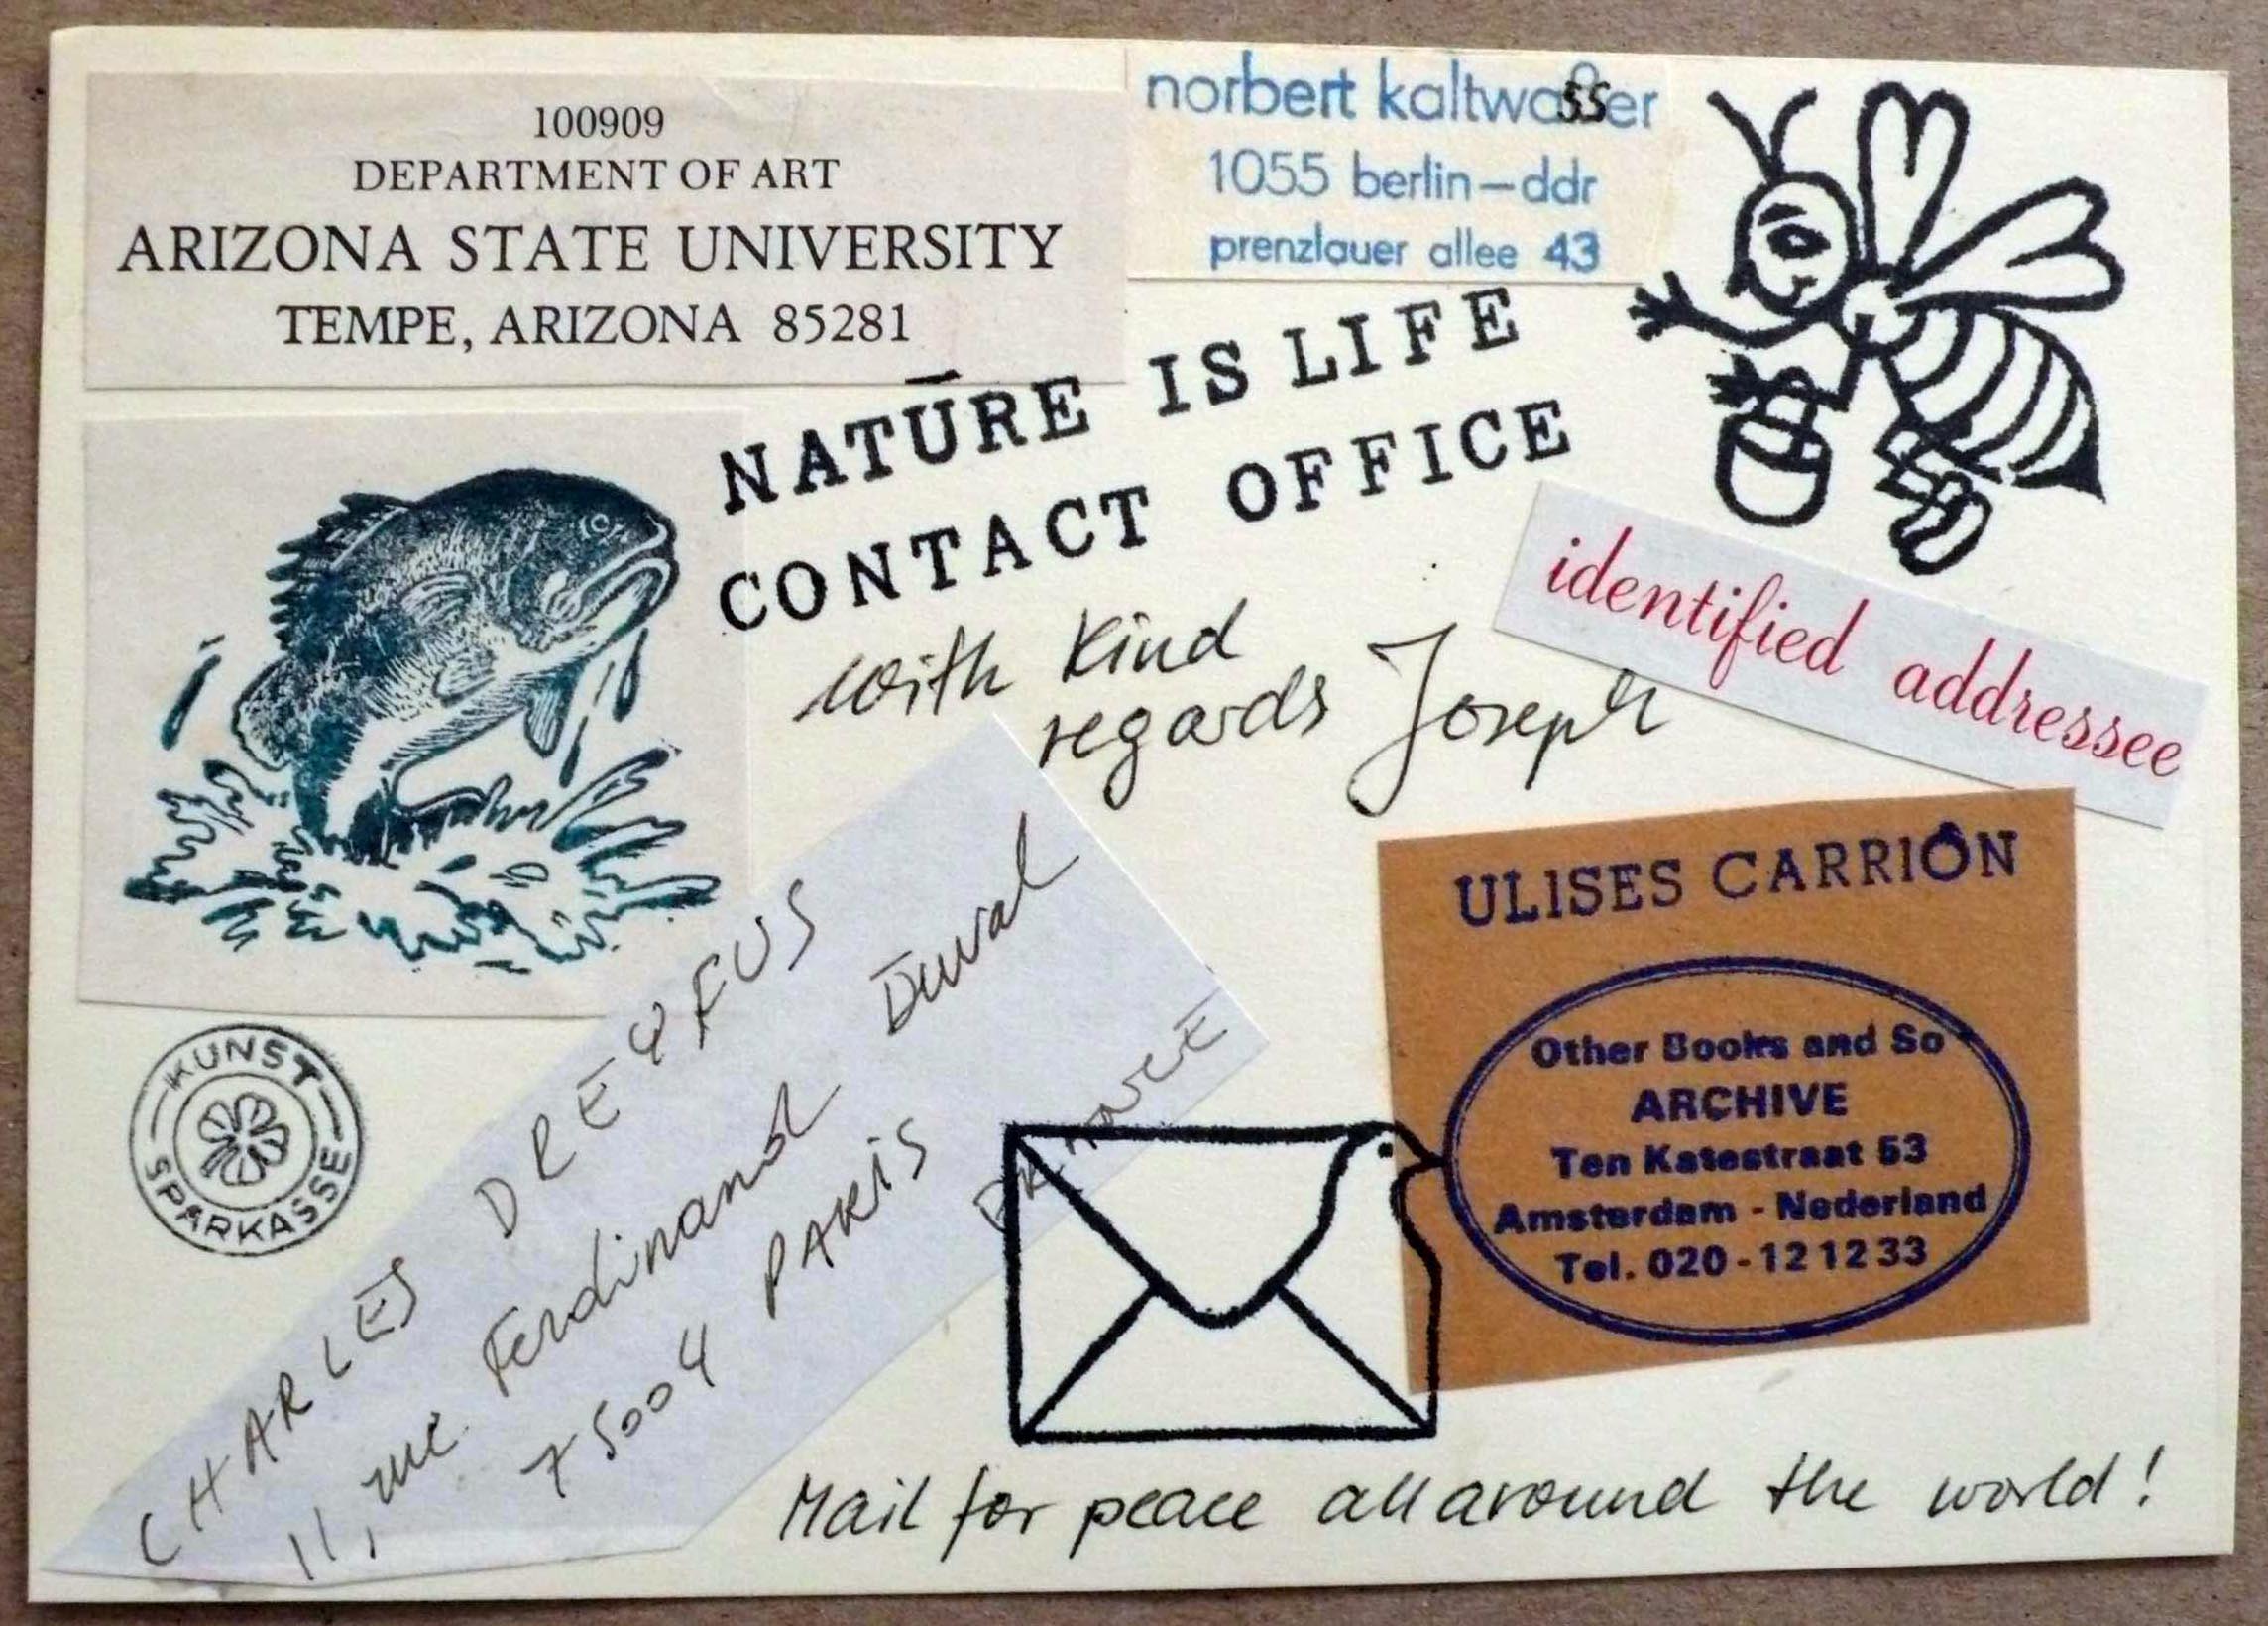 100909
DEPARTMENT OF ART
ARIZONA STATE UNIVERSITY
TEMPE, ARIZONA 85281
norbert kaltwasser
1055 berlin—ddr
prenzlauer allee 43
NATURE IS LIFE
CONTACT OFFICE
with kind
regards Joseph
identified addressee
ULISES CARRIÓN
Other Books and So
ARCHIVE
Ten Katestraat 53
Amsterdam - Nederland
Tel. 020 - 12 12 33
KUNST
SPARKASSE
CHARLES DREYFUS
11, rue Ferdinand Duval
75004 PARIS FRANCE
Mail for peace all around the world!